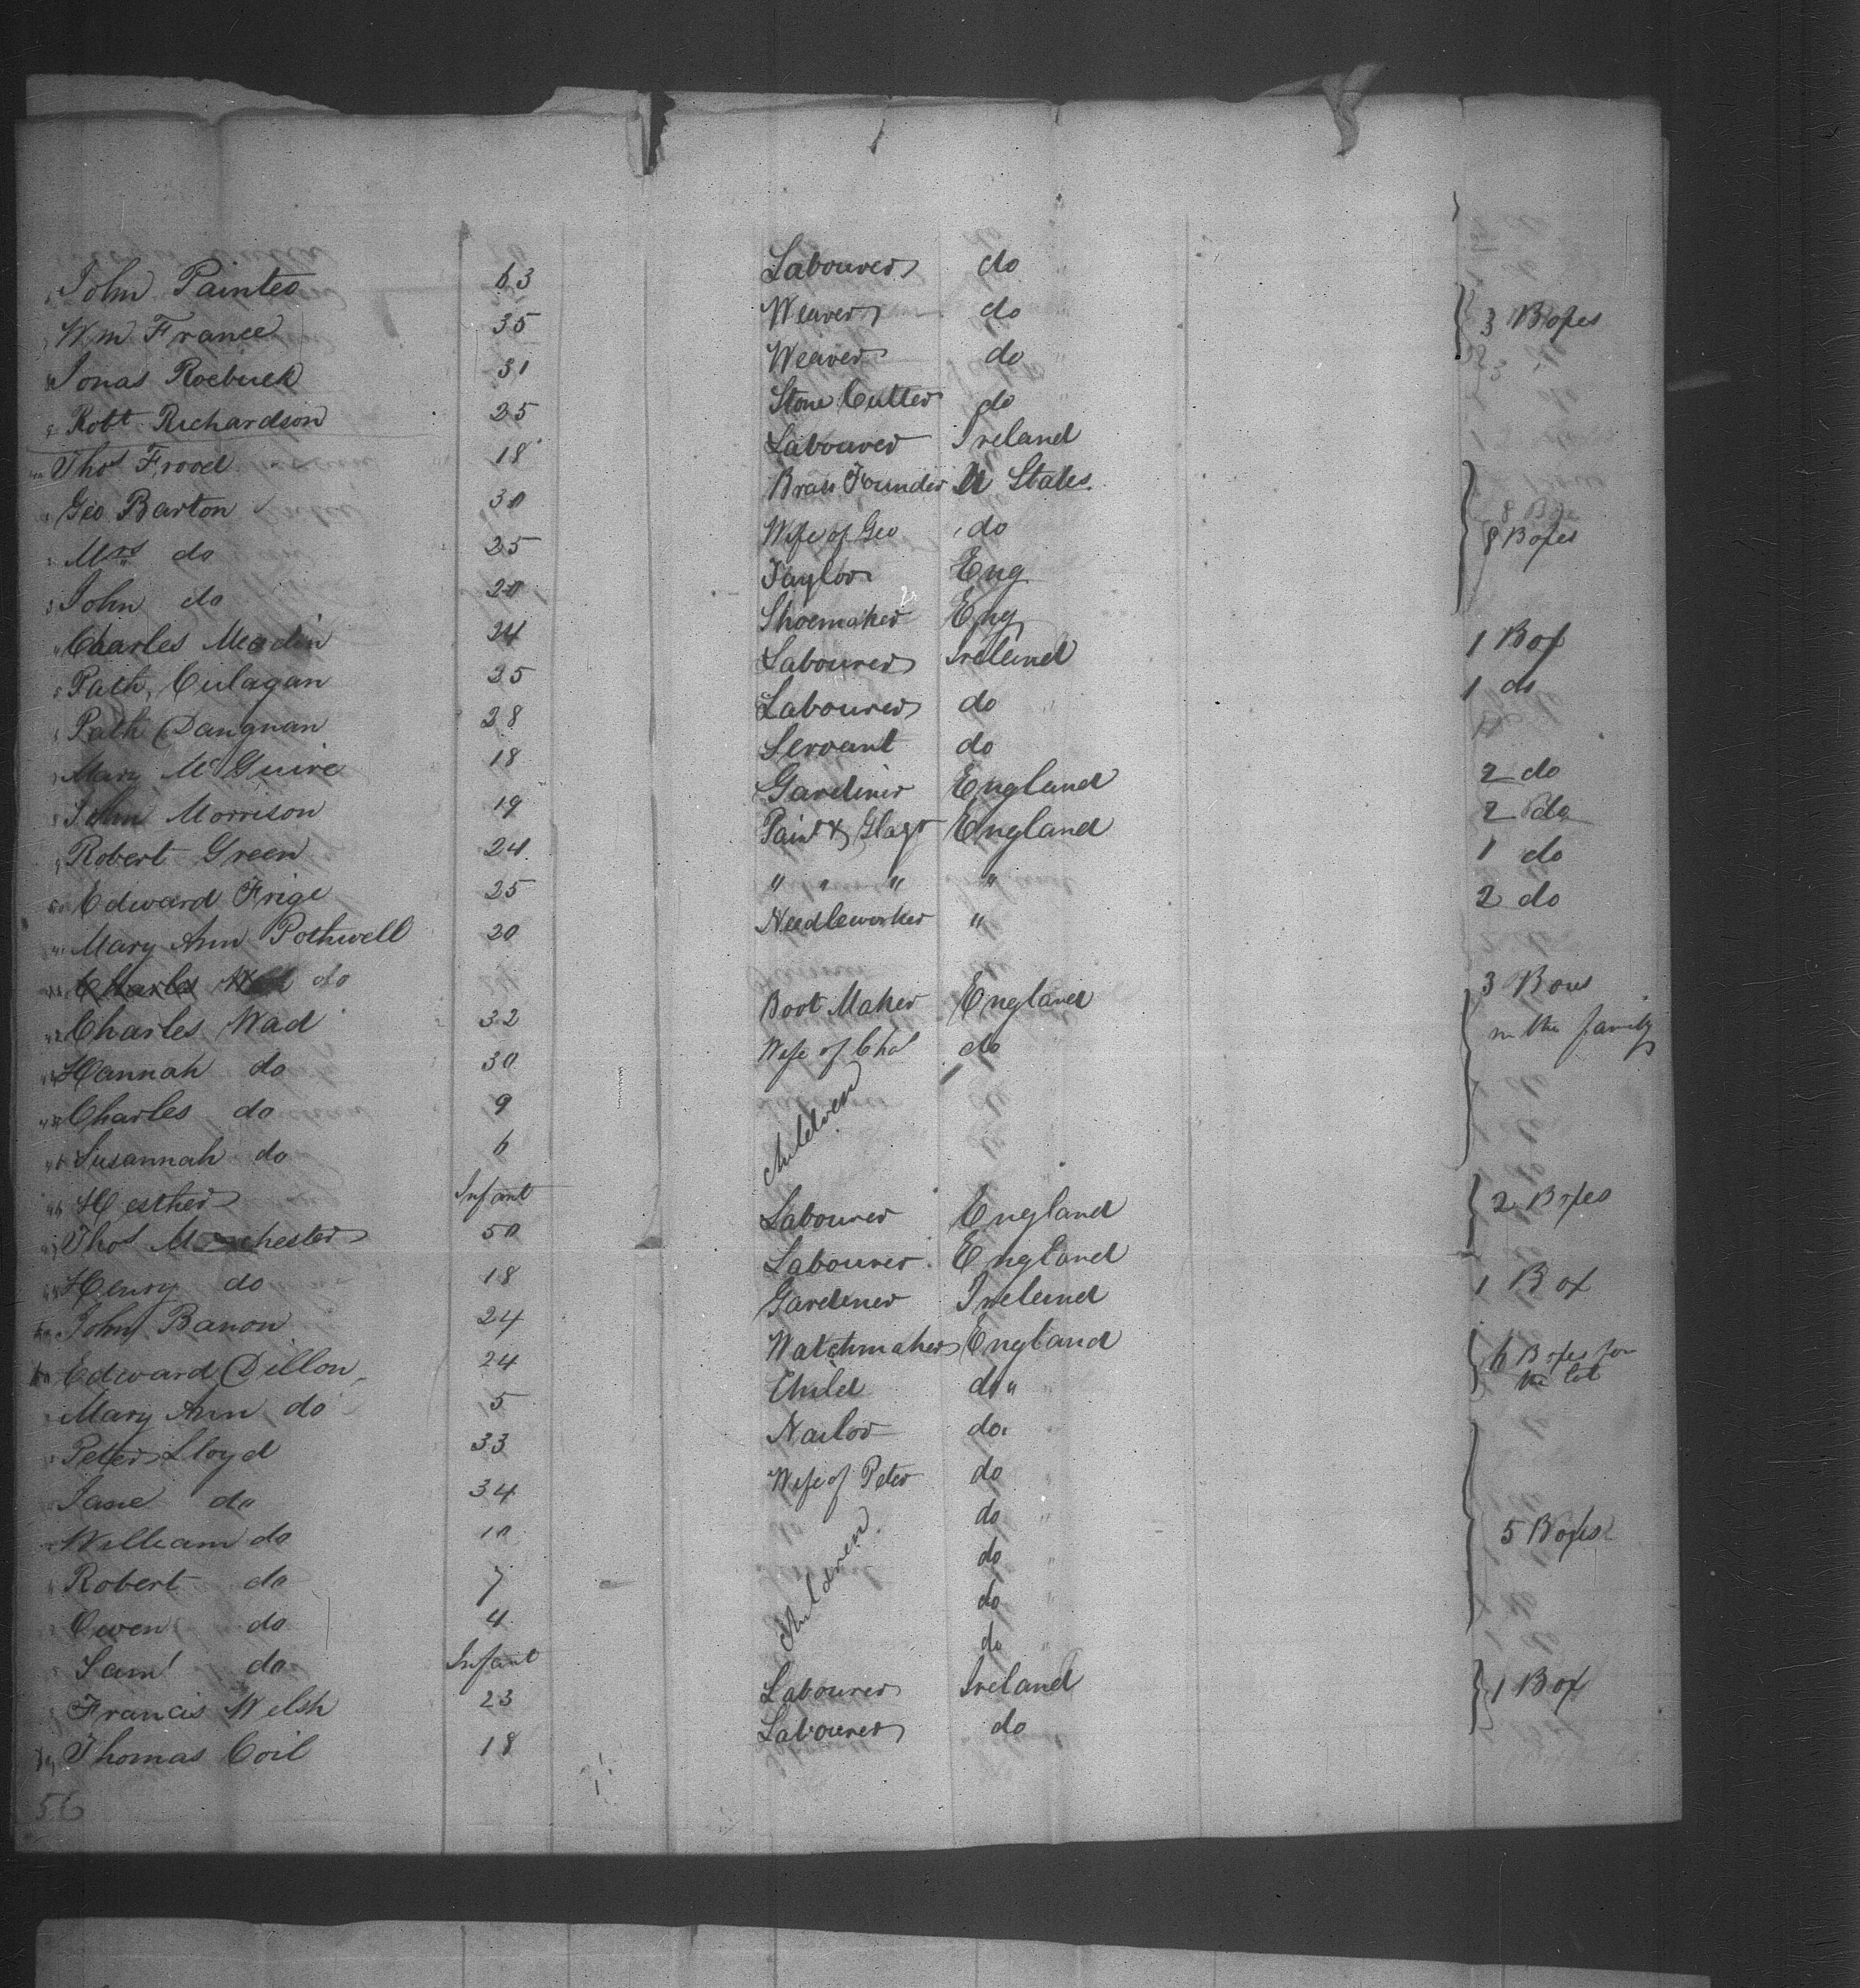 John Painter 63 Labourer do
Wm France 35 Weaver do 3 Boxes
Jonas Roebuck 31 Weaver do
Robt Richardson 25 Stone Cutter do
Thos Frood 18 Labourer Ireland
Geo Barton 30 Brass Founder U States
Mrs do 25 Wife of Geo do 8 Boxes
John do 20 Taylor Eng
Charles Meadin 24 Shoemaker Eng 1 Box
Path Culagan 25 Labourer Ireland 1 do
Path Dangnan 28 Labourer do
Mary McGuire 18 Servant do 2 do
John Morrison 19 Gardiner England 2 do
Robert Green 24 Paint & Glazr England 1 do
Edward Frige 25 " " " " 2 do
Mary Ann Pothwell 20 Needleworker "
Charles do 3 Boxes
Charles Wad 32 Boot Maker England in the family
Hannah do 30 Wife of Chas do
Charles do 9 Children
Susannah do 6
Hesther Infant
Thos Manchester 50 Labourer England 2 Boxes
Henry do 18 Labourer England
John Banon 24 Gardener Ireland 1 Box
Edward Dillon 24 Watchmaker England 6 Boxes for
Mary Ann do 5 Child do " the lot
Peter Lloyd 33 Nailor do
Jane do 34 Wife of Peter do
William do 10 Children do 5 Boxes
Robert do 7 do
Owen do 4 do
Saml do Infant do
Francis Welsh 23 Labourer Ireland 1 Box
Thomas Coil 18 Labourer do
56